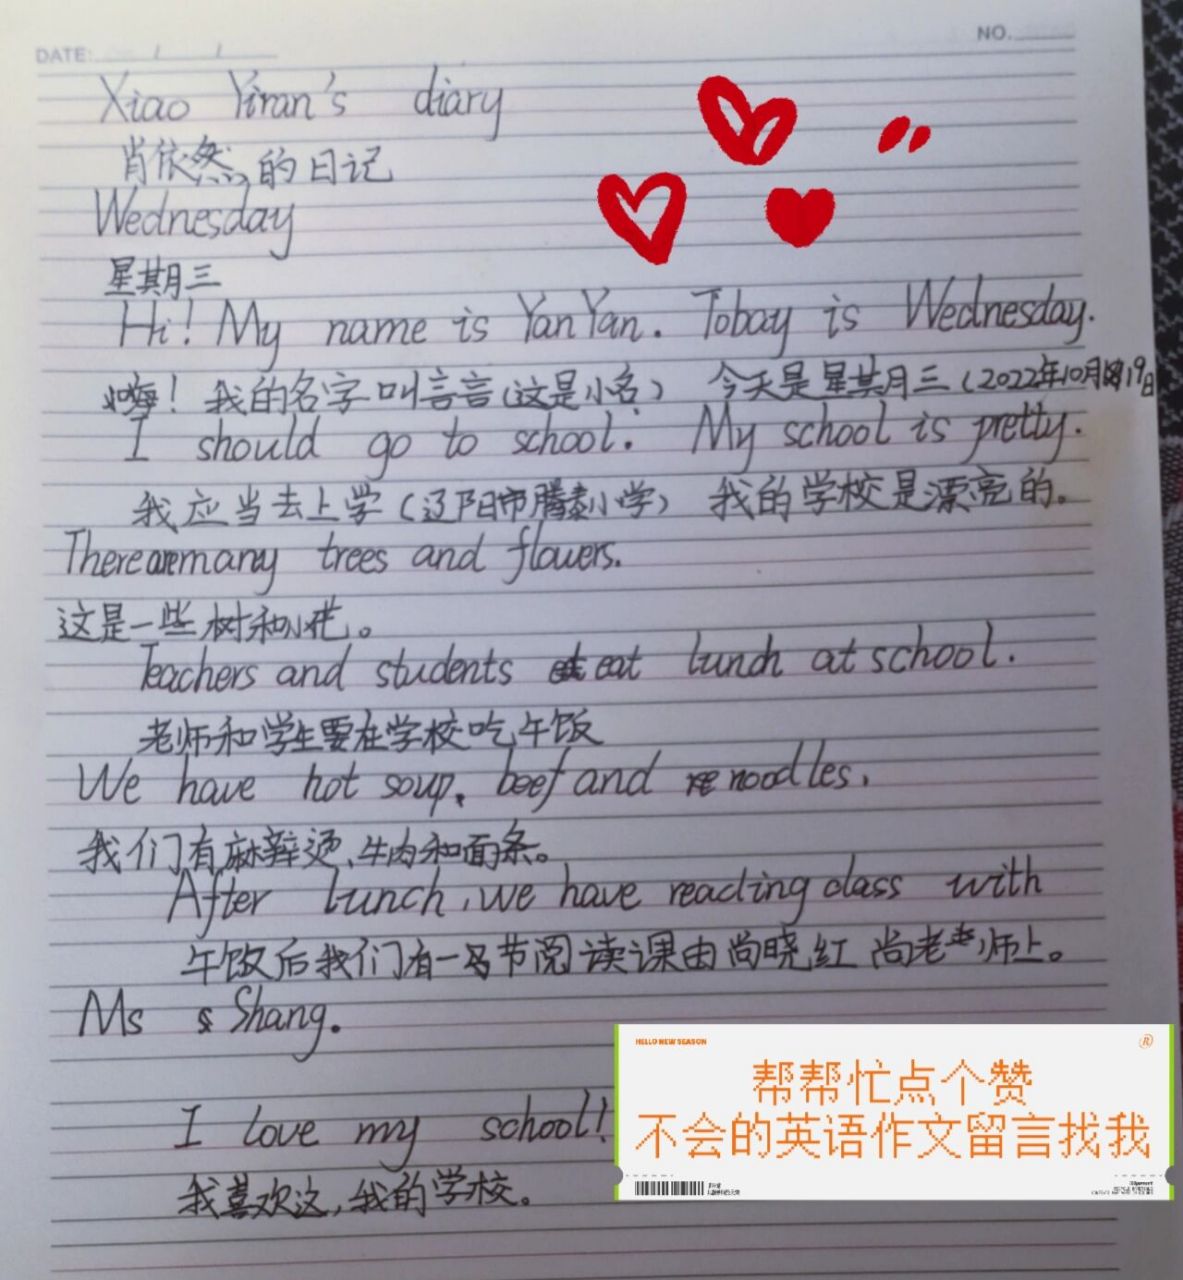 DATE: / /
NO.
Xiao Yiran's diary
肖依然的日记
Wednesday
星期三
Hi! My name is YanYan. Tobay is Wednesday.
嗨！我的名字叫言言（这是小名） 今天是星期三（2022年10月19日
I should go to school. My school is pretty.
我应当去上学（辽阳市腾泰小学） 我的学校是漂亮的。
There are many trees and flowers.
这是一些树和小花。
Teachers and students eat lunch at school.
老师和学生要在学校吃午饭
We have hot soup, beef and noodles.
我们有麻辣烫、牛肉和面条。
After lunch, we have reading class with
午饭后我们有一节阅读课由尚晓红尚老师上。
Ms Shang.
I love my school!
我喜欢这，我的学校。
HELLO NEW SEASON
®
帮帮忙点个赞
不会的英语作文留言找我